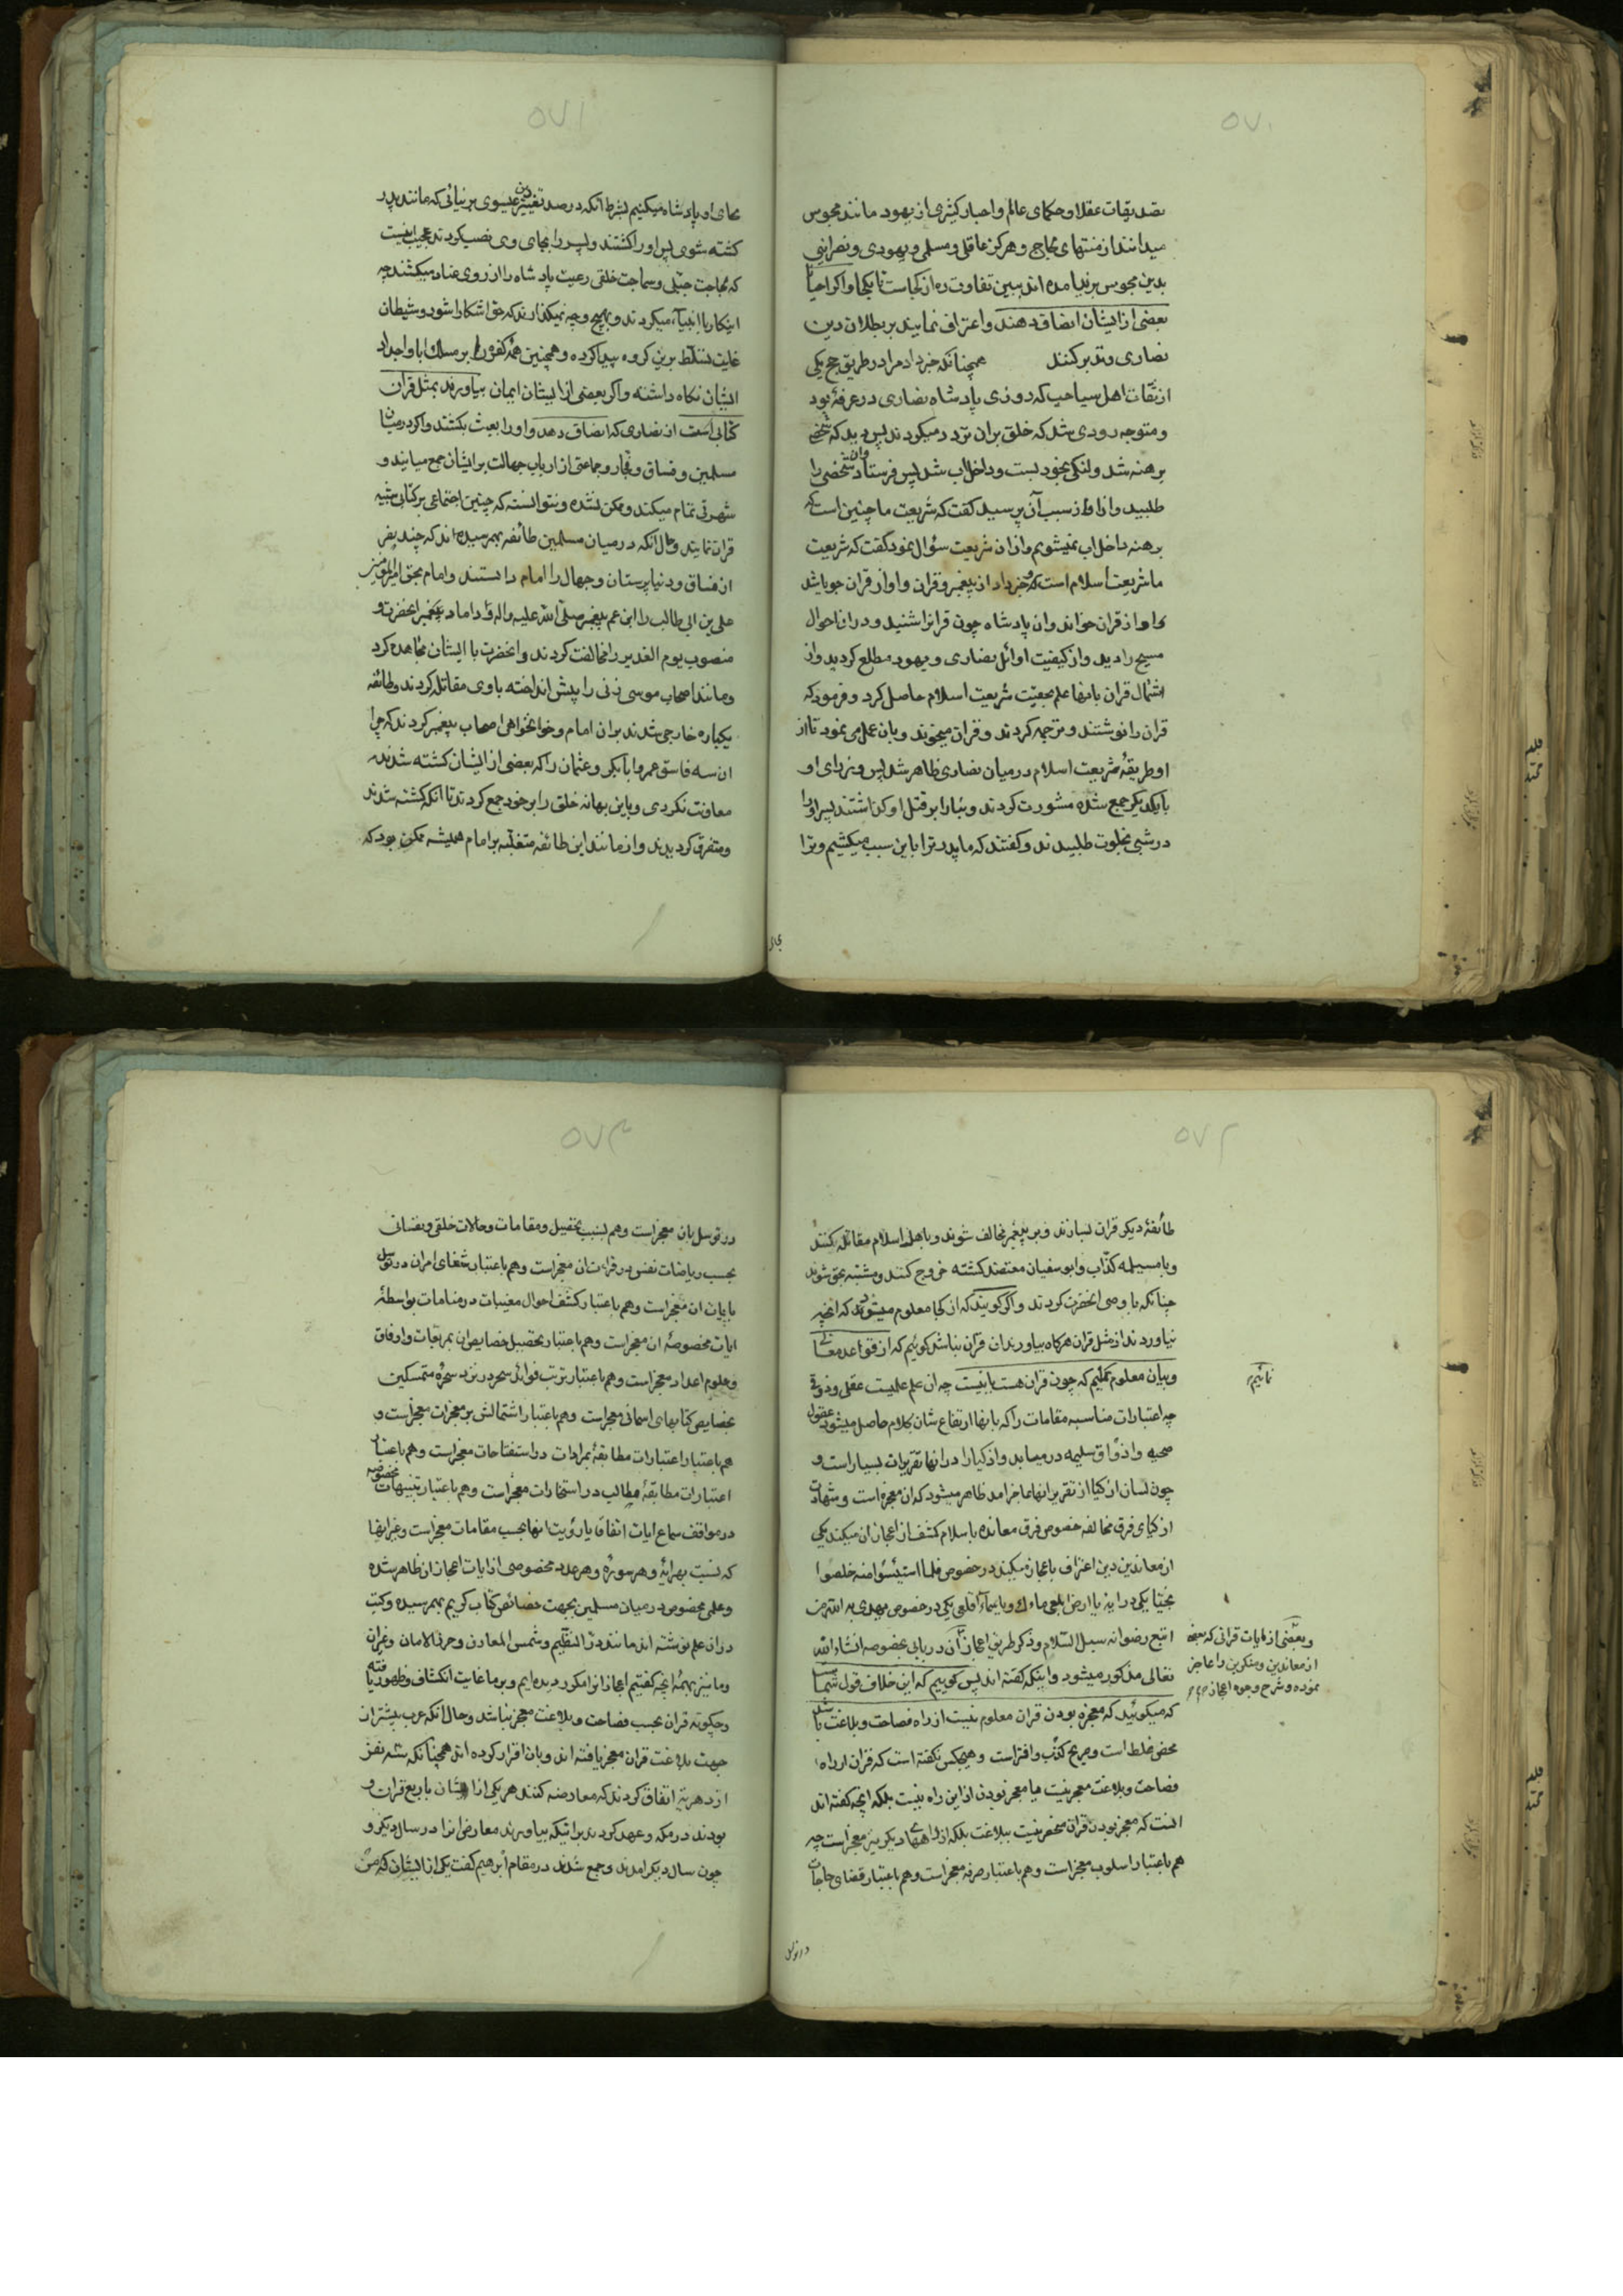 ۵۷۰
تصدیقات عقلا و حکمای عالم و احبار کثیری از یهود مانند مجوس
میدانند از منتهای لجاج و هرگز عاقلی و مسلمی و یهودی و نصرانیی
بدین مجوس برنیامده اند ببین تفاوت ره از کجاست تا بکجا و اگر احیاناً
بعضی از ایشان انصاف دهند و اعتراف نمایند بر بطلان دین
نصاری و تدبر کنند همچنانکه خبر داد مرا در طریق حج یکی
از ثقات اهل سیاحب که روزی پادشاه نصاری در غرفهٔ بود
و متوجه رودی شد که خلق بران تردد میکردند پس دید که شخصی
برهنه شد و لنگی بخود بست و داخل اب شد پس فرستاد و ان شخص را
طلبید و از او از سبب آن پرسید گفت که شریعت ما چنین است که
برهنه داخل اب نمیشویم و از ان شریعت سؤال نمود گفت که شریعت
ما شریعت اسلام است و خبر داد از پیغمبر و قران و او از قران جویا شد
و او از قران خواند و ان پادشاه چون قرانرا شنید و در ان احوال
مسیح را دید و از کیفیت اوائل نصاری و یهود مطلع کردید و از
اشتمال قران بانها علم بحقیّت شریعت اسلام حاصل کرد و فرمود که
قران را نوشتند و ترجمه کردند و قران میخوند و بان عمل می نمود تا از
او طریقهٔ شریعت اسلام در میان نصاری ظاهر شد پس وزرای او
با یکدیگر جمع شده مشورت کردند و بنا را بر قتل او کذاشتند پسر او را
در شبی بخلوت طلبیدند و گفتند که ما پدر ترا باین سبب میکشیم و ترا
بجای
۵۷۱
بجای او پادشاه میکنیم بشرط آنکه در صدد تغییر دین عیسوی برنیائی که مانند پدر
کشته شوی پس او را کشتند و پسر را بجای وی نصب کردند عجیب نیست
که لجاجت جبلّی و سماجت خلقی رعیت پادشاه را از روی عناد میکشند چه
اینکار با انبیاء میکردند و بهیچ وجه نمیگذارند که حق اشکارا شود و شیطان
غایت تسلّط برین کروه پیدا کرده و همچنین همه کفره را بر مسلک ابا و اجداد
ایشان نکاه داشته و اگر بعضی از ایشان ایمان بیاورند بمثل قرآن
کتابی است از نصاری که انصاف دهد و او را بعبث بکشند و اگر در میان
مسلمین و فساق و فجار و جماعتی از ارباب جهالت بر ایشان جمع میایند و
شهرتی تمام میکند و ممکن نشده و نتوانسته که چنین اجتماعی بر کتابی شبیه
قران نمایند و حال آنکه در میان مسلمین طائفه بهمرسیده اند که چند نفر
از فساق و دنیاپرستان و جهال را امام دانستند و امام بحق امیرالمؤمنین
علی بن ابی طالب را ابن عم پیغمبر صلّی الله علیه واله و داماد پیغمبر انحضرت و
منصوب یوم الغدیر را مخالفت کردند و انحضرت با ایشان مجاهده کرد
و مانند اصحاب موسی زنی را پیش انداخته با وی مقاتله کردند و طائفه
یکباره خارجی شدند بران امام و خوانخواهی اصحاب پیغمبر کردند که چرا
ان سه فاسق عمر و ابابکر و عثمان را که بعضی از ایشان کشته شدند
معاونت نکردی و باین بهانه خلق را بر خود جمع کردند تا انکه کشته شدند
و متفرق کردیدند و از مانند این طائفه متغلّبه بر امام همیشه ممکن بود که
۵۷۲
طائفهٔ دیگر قران بسازند و بر پیغمبر مخالف شوند و با اهل اسلام مقاتله کنند
و با مسیلمه کذّاب و ابوسفیان معتضد کشته خروج کنند و مشتبه بحق شوند
چنانکه با وصی انحضرت کردند و اگر گویند که از کجا معلوم میشود که انچه
بیاوردند از مثل قران هرگاه بیاورند ان قرآن نباشد گوئیم که از قواعد معانی
و بیان معلوم نمائیم که چون قران هست یا نیست چه ان علم علمیست عقلی و ذوقی
چه اعتبارات مناسبه مقامات را که بانها ارتفاع شان کلام حاصل میشود عقول
صحیه و اذواق سلیمه درمییابد و اذکیا را در انها تقریرات بسیار است و
چون لسان اذکیا از تقریر انها عاجز امد ظاهر میشود که ان معجزه است و شهادت
ازکیای فرق مخالفه خصوص فرق معانده با سلام کشف از اعجاز ان میکند یکی
از معاندین دین اعتراف باعجاز میکند در خصوص فلما استیئسوا منه خلصوا
نجیّا یکی در ایه یا ارض ابلعی ماءک و یا سماء اقلعی یکی در خصوص یهدی به الله من
اتبع رضوانه سبل السّلام و ذکر طریق اعجاز ان در بابی بخصوصه انشاءالله
تعالی مذکور میشود و اینکه گفته اند پس گوییم که این خلاف قول شما
که میگوئید که معجزه بودن قران معلوم نیست از راه فصاحت و بلاغت باشد
محض غلط است و صریح کذب و افتراست و هیچکس نگفته است که قران از راه
فصاحت و بلاغت معجز نیست یا معجز بودن از این راه نیست بلکه انچه گفته اند
انست که معجز بودن قران منحصر نیست ببلاغت بلکه از راههای دیگر نیز معجز است چه
هم باعتبار اسلوب معجز است و هم باعتبار صرفه معجز است و هم باعتبار قضای حاجات
نمائیم
و بعضی از ایات قرانی که بعضی
از معاندین و منکرین را عاجز
نموده و شرح وجوه اعجاز
در توسل
۵۷۳
در توسل بان معجز است و هم بسبب تحصیل و مقامات و حالات خلقی و نفسانی
بحسب ریاضات نفس در قراءت ان معجز است و هم باعتبار شفای امراض در توسل
بایات ان معجز است و هم باعتبار کشف احوال مغیبات در منامات بواسطهٔ
ایات مخصوصهٔ ان معجز است و هم باعتبار تحصیل خصایص ان بمربعات و اوفاق
و علوم اعداد معجز است و هم باعتبار ترتب فوائد سحر در نزد سحرهٔ متمسکین
بخصایص کتابهای اسمانی معجز است و هم باعتبار اشتمالش بر معجزات معجز است و
هم باعتبار اعتبارات مطابقهٔ بمرادات در استفتاحات معجز است و هم باعتبار
اعتبارات مطابقهٔ مطالب در استخارات معجز است و هم باعتبار تنبیهات مخصوصه
در مواقف سماع ایات اتفاقا یا رؤیت انها بحسب مقامات معجز است و غیر انها
که نسبت بهر ایهٔ و هر سورهٔ و هر عدد مخصوصی از ایات اعجاز ان ظاهر شده
و علمی مخصوص در میان مسلمین بجهت خصائص کتاب کریم بهمرسیده و کتب
در ان علم نوشته اند مانند درّ النظیم و شمس المعارف و حرز الامان و غیر ان
و ما نیز بهمهٔ انچه گفتیم اعجاز انرا مکرر دیده ایم و بر ما غایت انکشاف و ظهور یافته
و چگونه قران بحسب فصاحت و بلاغت معجز نباشد و حال انکه عرب بیشتر از
جهت بلاغت قران معجز یافته اند و بان اقرار کرده اند همچنانکه سه نفر
از دهریه اتفاق کردند که معارضه کنند هر یکی از ایشان با ربع قران و
بودند در مکه و عهد کردند بر اینکه بیاورند معارض انرا در سال دیگر و
چون سال دیگر امدند و جمع شدند در مقام ابرهیم گفت یکی از ایشان که من